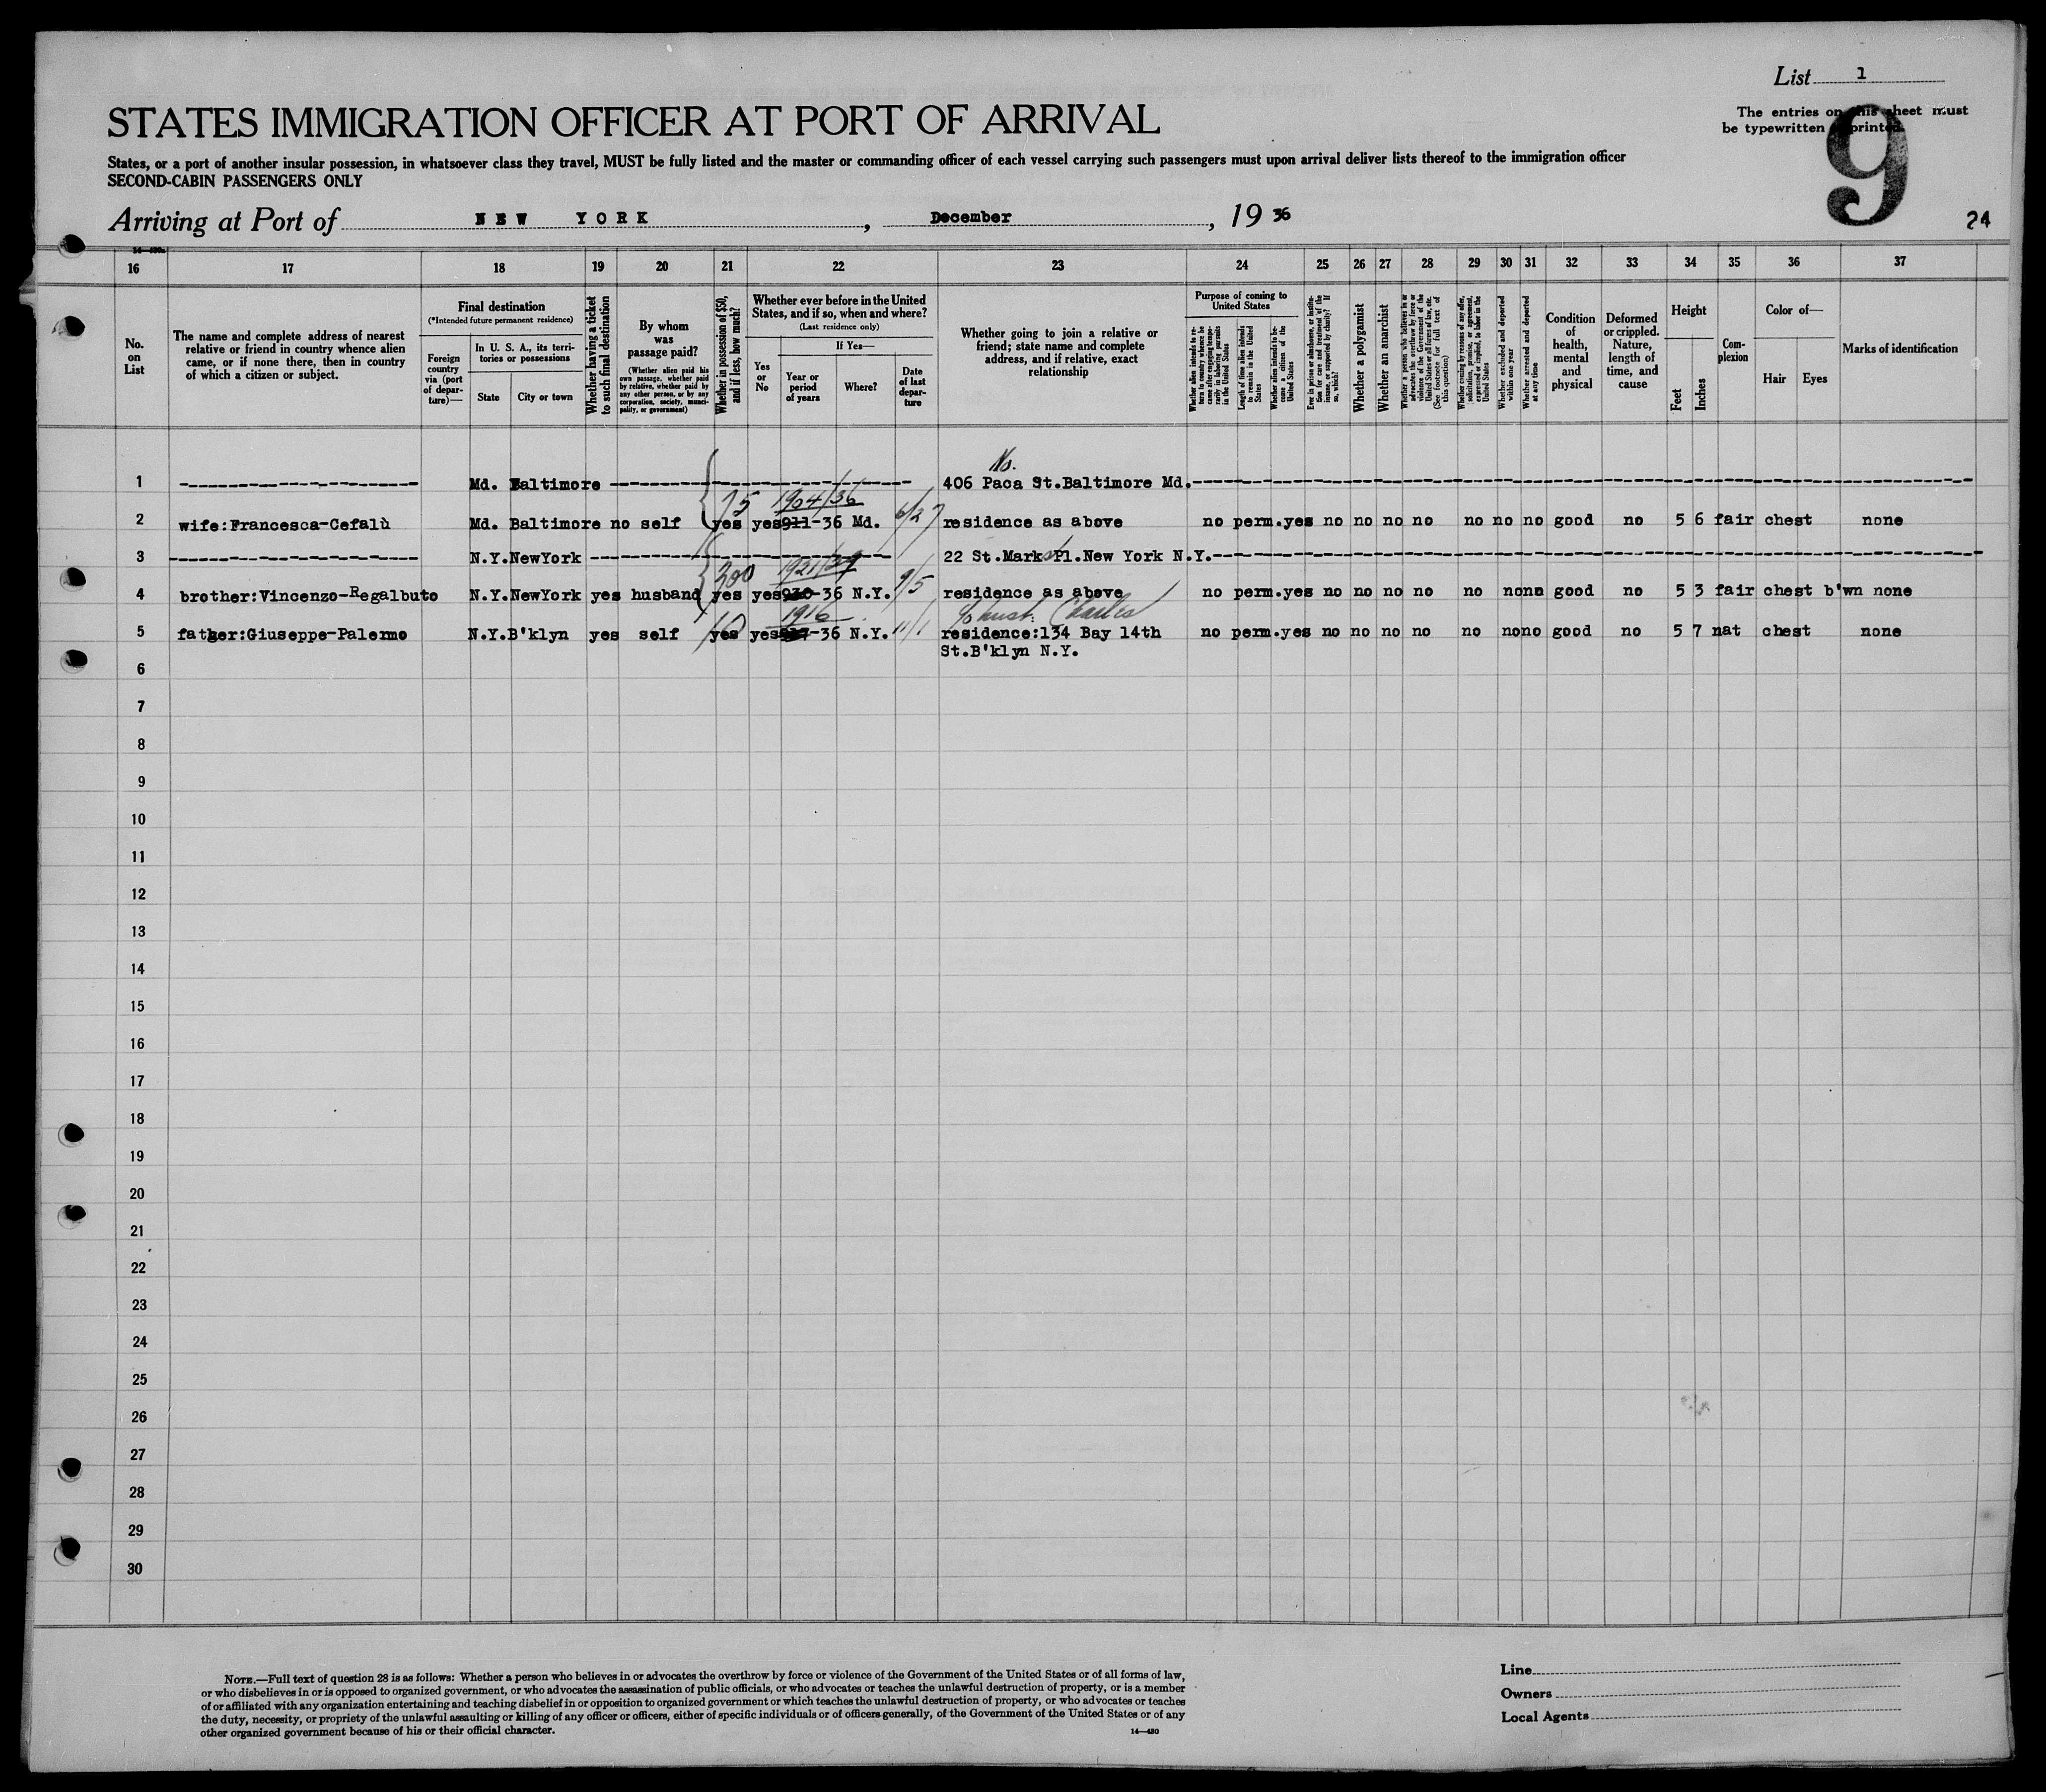 List 1
The entries on this sheet must
be typewritten printed
9
STATES IMMIGRATION OFFICER AT PORT OF ARRIVAL
States, or a port of another insular possession, in whatsoever class they travel, MUST be fully listed and the master or commanding officer of each vessel carrying such passengers must upon arrival deliver lists thereof to the immigration officer
SECOND-CABIN PASSENGERS ONLY
Arriving at Port of NEW YORK, December, 19 36
24
16 17 18 19 20 21 22 23 24 25 26 27 28 29 30 31 32 33 34 35 36 37
No. on List
The name and complete address of nearest
relative or friend in country whence alien
came, or if none there, then in country
of which a citizen or subject.
Final destination
(*Intended future permanent residence)
Foreign country via (port of departure)—
In U. S. A., its territories or possessions
State
City or town
Whether having a ticket to such final destination
By whom was passage paid?
(Whether alien paid his own passage, whether paid by relative, whether paid by any other person, or by any corporation, society, municipality, or government)
Whether in possession of $50, and if less, how much?
Whether ever before in the United States, and if so, when and where?
(Last residence only)
Yes or No
If Yes—
Year or period of years
Where?
Date of last departure
Whether going to join a relative or
friend; state name and complete
address, and if relative, exact
relationship
Purpose of coming to United States
Whether alien intends to return to country whence he came after engaging temporarily in laboring pursuits in the United States
Length of time alien intends to remain in the United States
Whether alien intends to become a citizen of the United States
Ever in prison or almshouse, or institution for care and treatment of the insane, or supported by charity? If so, which?
Whether a polygamist
Whether an anarchist
Whether a person who believes in or advocates the overthrow by force or violence of the Government of the United States or all forms of law, etc. (See footnote for full text of this question)
Whether coming by reason of any offer, solicitation, promise, or agreement, expressed or implied, to labor in the United States
Whether excluded and deported within one year
Whether arrested and deported at any time
Condition of health, mental and physical
Deformed or crippled. Nature, length of time, and cause
Height
Feet
Inches
Complexion
Color of—
Hair
Eyes
Marks of identification
No.
1 Md. Baltimore 406 Paca St.Baltimore Md.
75 1904/36 6/27
2 wife:Francesca-Cefalù Md. Baltimore no self yes yes 911-36 Md. residence as above no perm. yes no no no no no no no good no 5 6 fair chest none
3 N.Y. NewYork 22 St.Mark Pl.New York N.Y.
300 1921/29 9/5
4 brother:Vincenzo-Regalbuto N.Y. NewYork yes husband yes yes 930-36 N.Y. residence as above no perm. yes no no no no no no no good no 5 3 fair chest b'wn none
1916 11/1 c/o husb: Charles
5 father:Giuseppe-Palermo N.Y. B'klyn yes self yes yes -36 N.Y. residence:134 Bay 14th no perm. yes no no no no no no no good no 5 7 nat chest none
St.B'klyn N.Y.
6
7
8
9
10
11
12
13
14
15
16
17
18
19
20
21
22
23
24
25
26
27
28
29
30
NOTE.—Full text of question 28 is as follows: Whether a person who believes in or advocates the overthrow by force or violence of the Government of the United States or of all forms of law,
or who disbelieves in or is opposed to organized government, or who advocates the assassination of public officials, or who advocates or teaches the unlawful destruction of property, or is a member
of or affiliated with any organization entertaining and teaching disbelief in or opposition to organized government or which teaches the unlawful destruction of property, or who advocates or teaches
the duty, necessity, or propriety of the unlawful assaulting or killing of any officer or officers, either of specific individuals or of officers generally, of the Government of the United States or of any
other organized government because of his or their official character.
14—430
Line
Owners
Local Agents